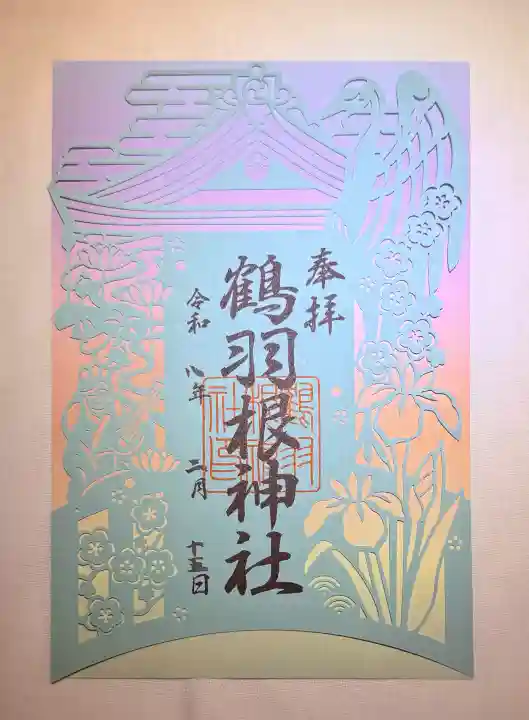 奉拝
鶴羽根神社
令和 八年 二月 十五日